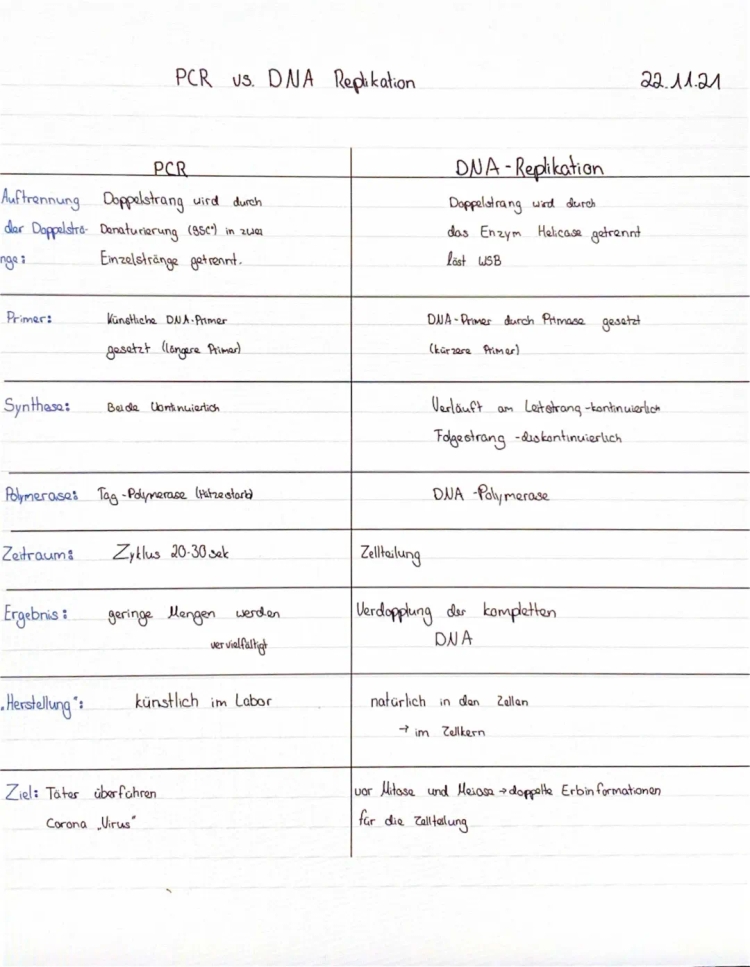 PCR vs. DNA Replikation 22.11.21
PCR DNA-Replikation
Auftrennung Doppelstrang wird durch Doppelstrang wird durch
der Doppelsträ- Denaturierung (95C°) in zwei das Enzym Helicase getrennt
nge: Einzelstränge getrennt. löst WSB
Primer: Künstliche DNA-Primer DNA-Primer durch Primase gesetzt
gesetzt (längere Primer) (kürzere Primer)
Synthese: Beide kontinuierlich Verläuft am Leitstrang -kontinuierlich
Folgestrang -diskontinuierlich
Polymerase: Tag-Polymerase (Hitzestark) DNA-Polymerase
Zeitraum: Zyklus 20-30 sek Zellteilung
Ergebnis: geringe Mengen werden Verdopplung der kompletten
vervielfältigt DNA
„Herstellung": künstlich im Labor natürlich in den Zellen
→ im Zellkern
Ziel: Täter überführen vor Mitose und Meiose → doppelte Erbinformationen
Corona „Virus" für die Zellteilung